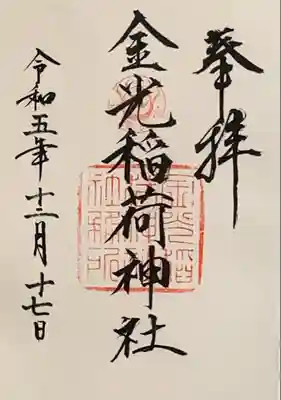 奉拝
金光稲荷神社
令和五年十二月十七日